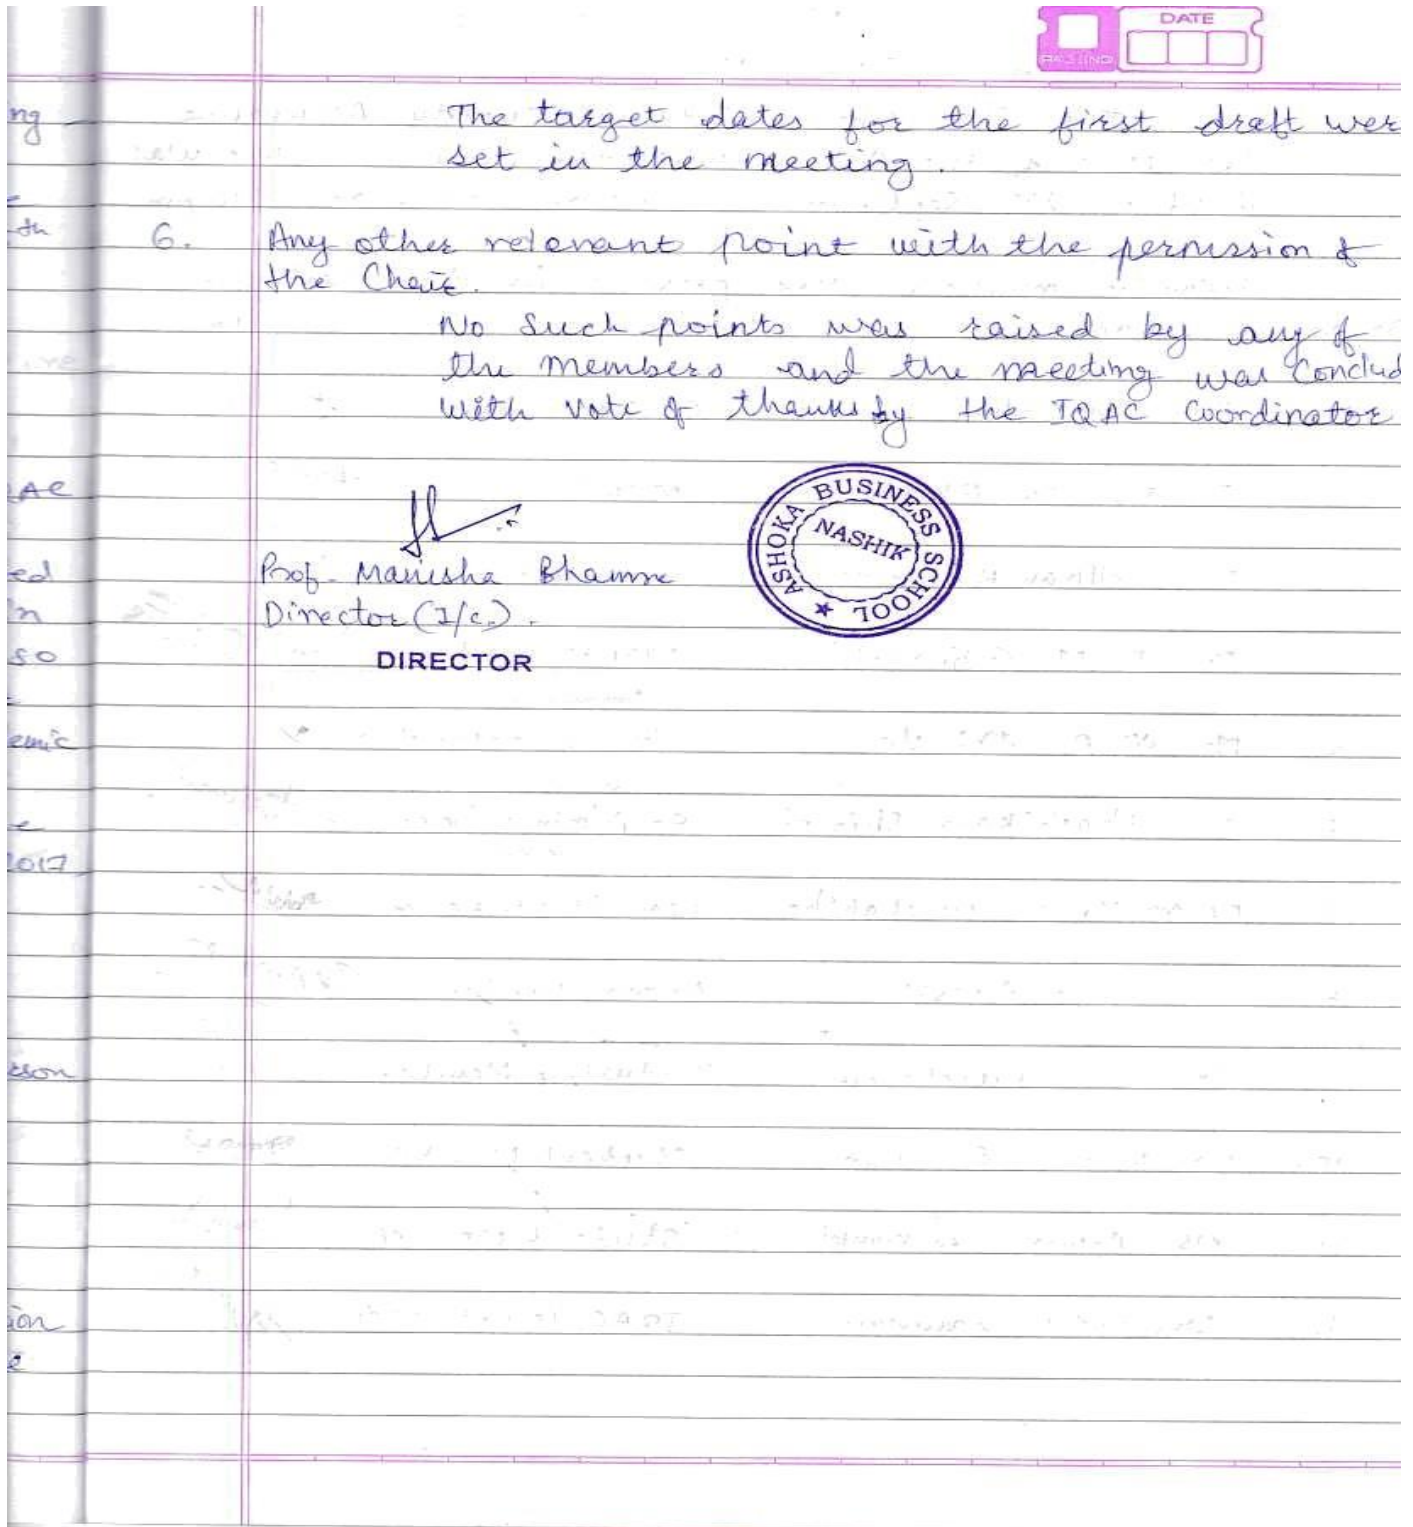 DATE
The target dates for the first draft wer
set in the meeting.
6. Any other relevant point with the permission of
the Chair.
No such points was raised by any of
the members and the meeting was Conclud
with vote of thanks by the IQAC Coordinator
ASHOKA BUSINESS SCHOOL
NASHIK
Prof. Manisha Bhamre
Director (I/c.).
DIRECTOR
ng
th
AC
ed
in
so
emic
e
2017
son
ion
e